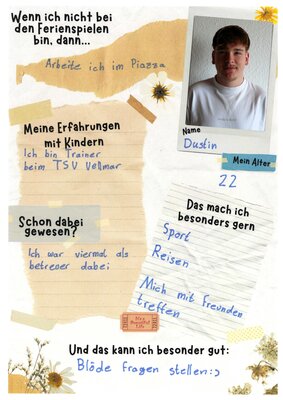 Wenn ich nicht bei
den Ferienspielen
bin, dann...
Arbeite ich im Piazza
Name
Dustin
Mein Alter
22
Meine Erfahrungen
mit Kindern
Ich bin Trainer
beim TSV Vellmar
Das mach ich
besonders gern
Sport
Reisen
Mich mit freunden
treffen
Schon dabei
gewesen?
Ich war viermal als
betreuer dabei
Und das kann ich besonder gut:
Blöde fragen stellen:)